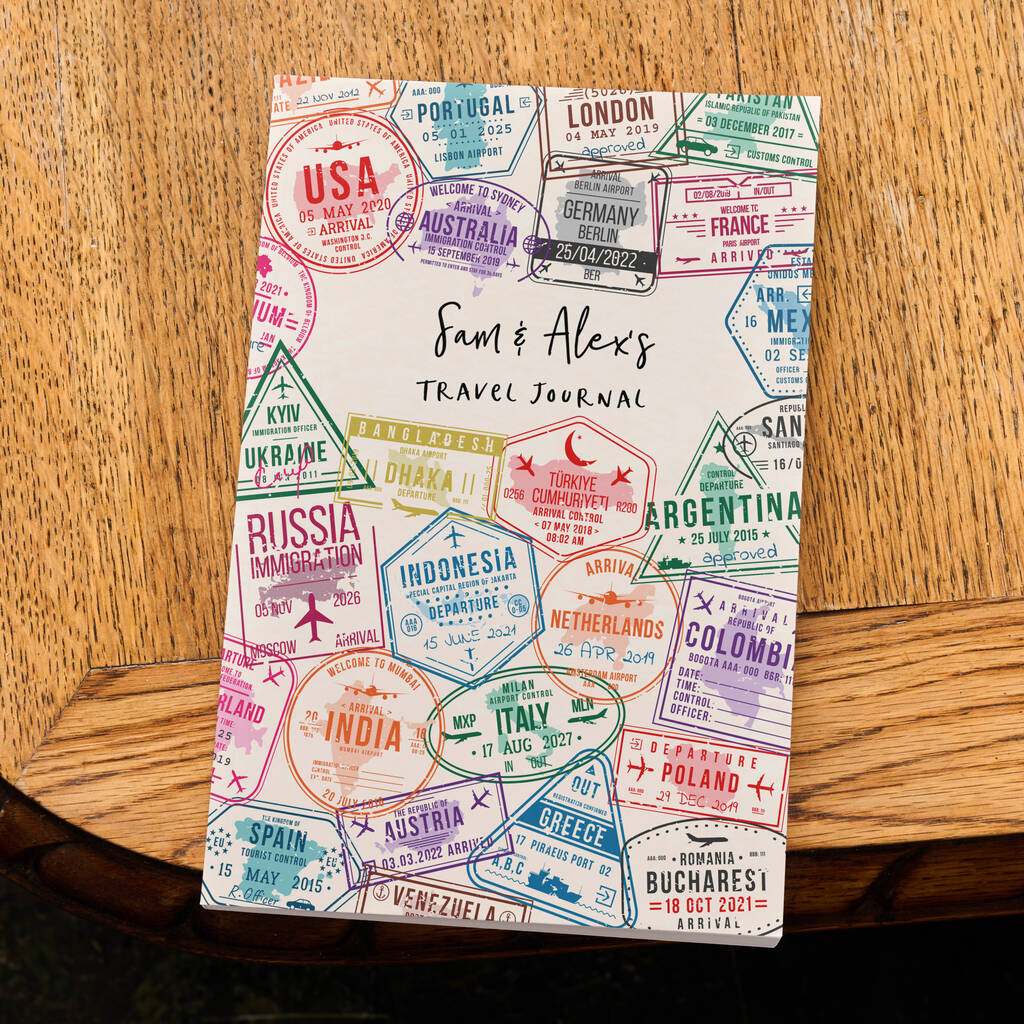 22 NOV 2012
PORTUGAL
05 01 2025
LISBON AIRPORT
LONDON
04 MAY 2019
approved
PAKISTAN
ISLAMIC REPUBLIC OF PAKISTAN
= 03 DECEMBER 2017 =
CUSTOMS CONTROL
UNITED STATES OF AMERICA
USA
05 MAY 2020
ARRIVAL
WASHINGTON D.C.
CONTROL
WELCOME TO SYDNEY
< ARRIVAL >
AUSTRALIA
IMMIGRATION CONTROL
15 SEPTEMBER 2019
ARRIVAL
BERLIN AIRPORT
GERMANY
BERLIN
25/04/2022
BER
02/08/2019
IN/OUT
FRANCE
PARIS AIRPORT
ARRIVED
2021
UM
JAN
ARR.
16
MEX
02 SE
OFFICER
CUSTOMS
Sam & Alex's
TRAVEL JOURNAL
KYIV
IMMIGRATION OFFICER
UKRAINE
BANGLADESH
DHAKA AIRPORT
DHAKA
DEPARTURE
TÜRKIYE
CUMHURIYETI
0256
R280
ARRIVAL CONTROL
< 07 MAY 2018 >
08:02 AM
REPUBL
SAN
SANTIAGO
16/0
CONTROL
DEPARTURE
ARGENTINA
★ 25 JULY 2015 ★
approved
RUSSIA
IMMIGRATION
05 NOV 2026
MOSCOW ARRIVAL
INDONESIA
SPECIAL CAPITAL REGION OF JAKARTA
DEPARTURE
AAA
016
15 JUNE 2021
ARRIVA
NETHERLANDS
26 APR 2019
AMSTERDAM AIRPORT
BOGOTA AIRPORT
ARRIVAL
REPUBLIC OF
COLOMBI
BOGOTA AAA: 000 BBR: 11
DATE:
TIME:
CONTROL:
OFFICER:
RLAND
TIME:
25
DATE:
2019
WELCOME TO MUMBAI
< ARRIVAL >
INDIA
MUMBAI AIRPORT
20 JULY 2016
MILAN
AIRPORT CONTROL
MXP
ITALY
MLN
17 AUG 2027
IN OUT
DEPARTURE
POLAND
29 DEC 2019
THE KINGDOM OF
SPAIN
TOURIST CONTROL
EU
EU
15 MAY 2015
R. Officer
THE REPUBLIC OF
AUSTRIA
03.03.2022 ARRIVED
OUT
REGISTRATION CONFIRMED
GREECE
17 PIRAEUS PORT 02
A,B,C
VENEZUELA
AAA: 000
BBB: 111
ROMANIA
BUCHAREST
= 18 OCT 2021 =
ARRIVAL